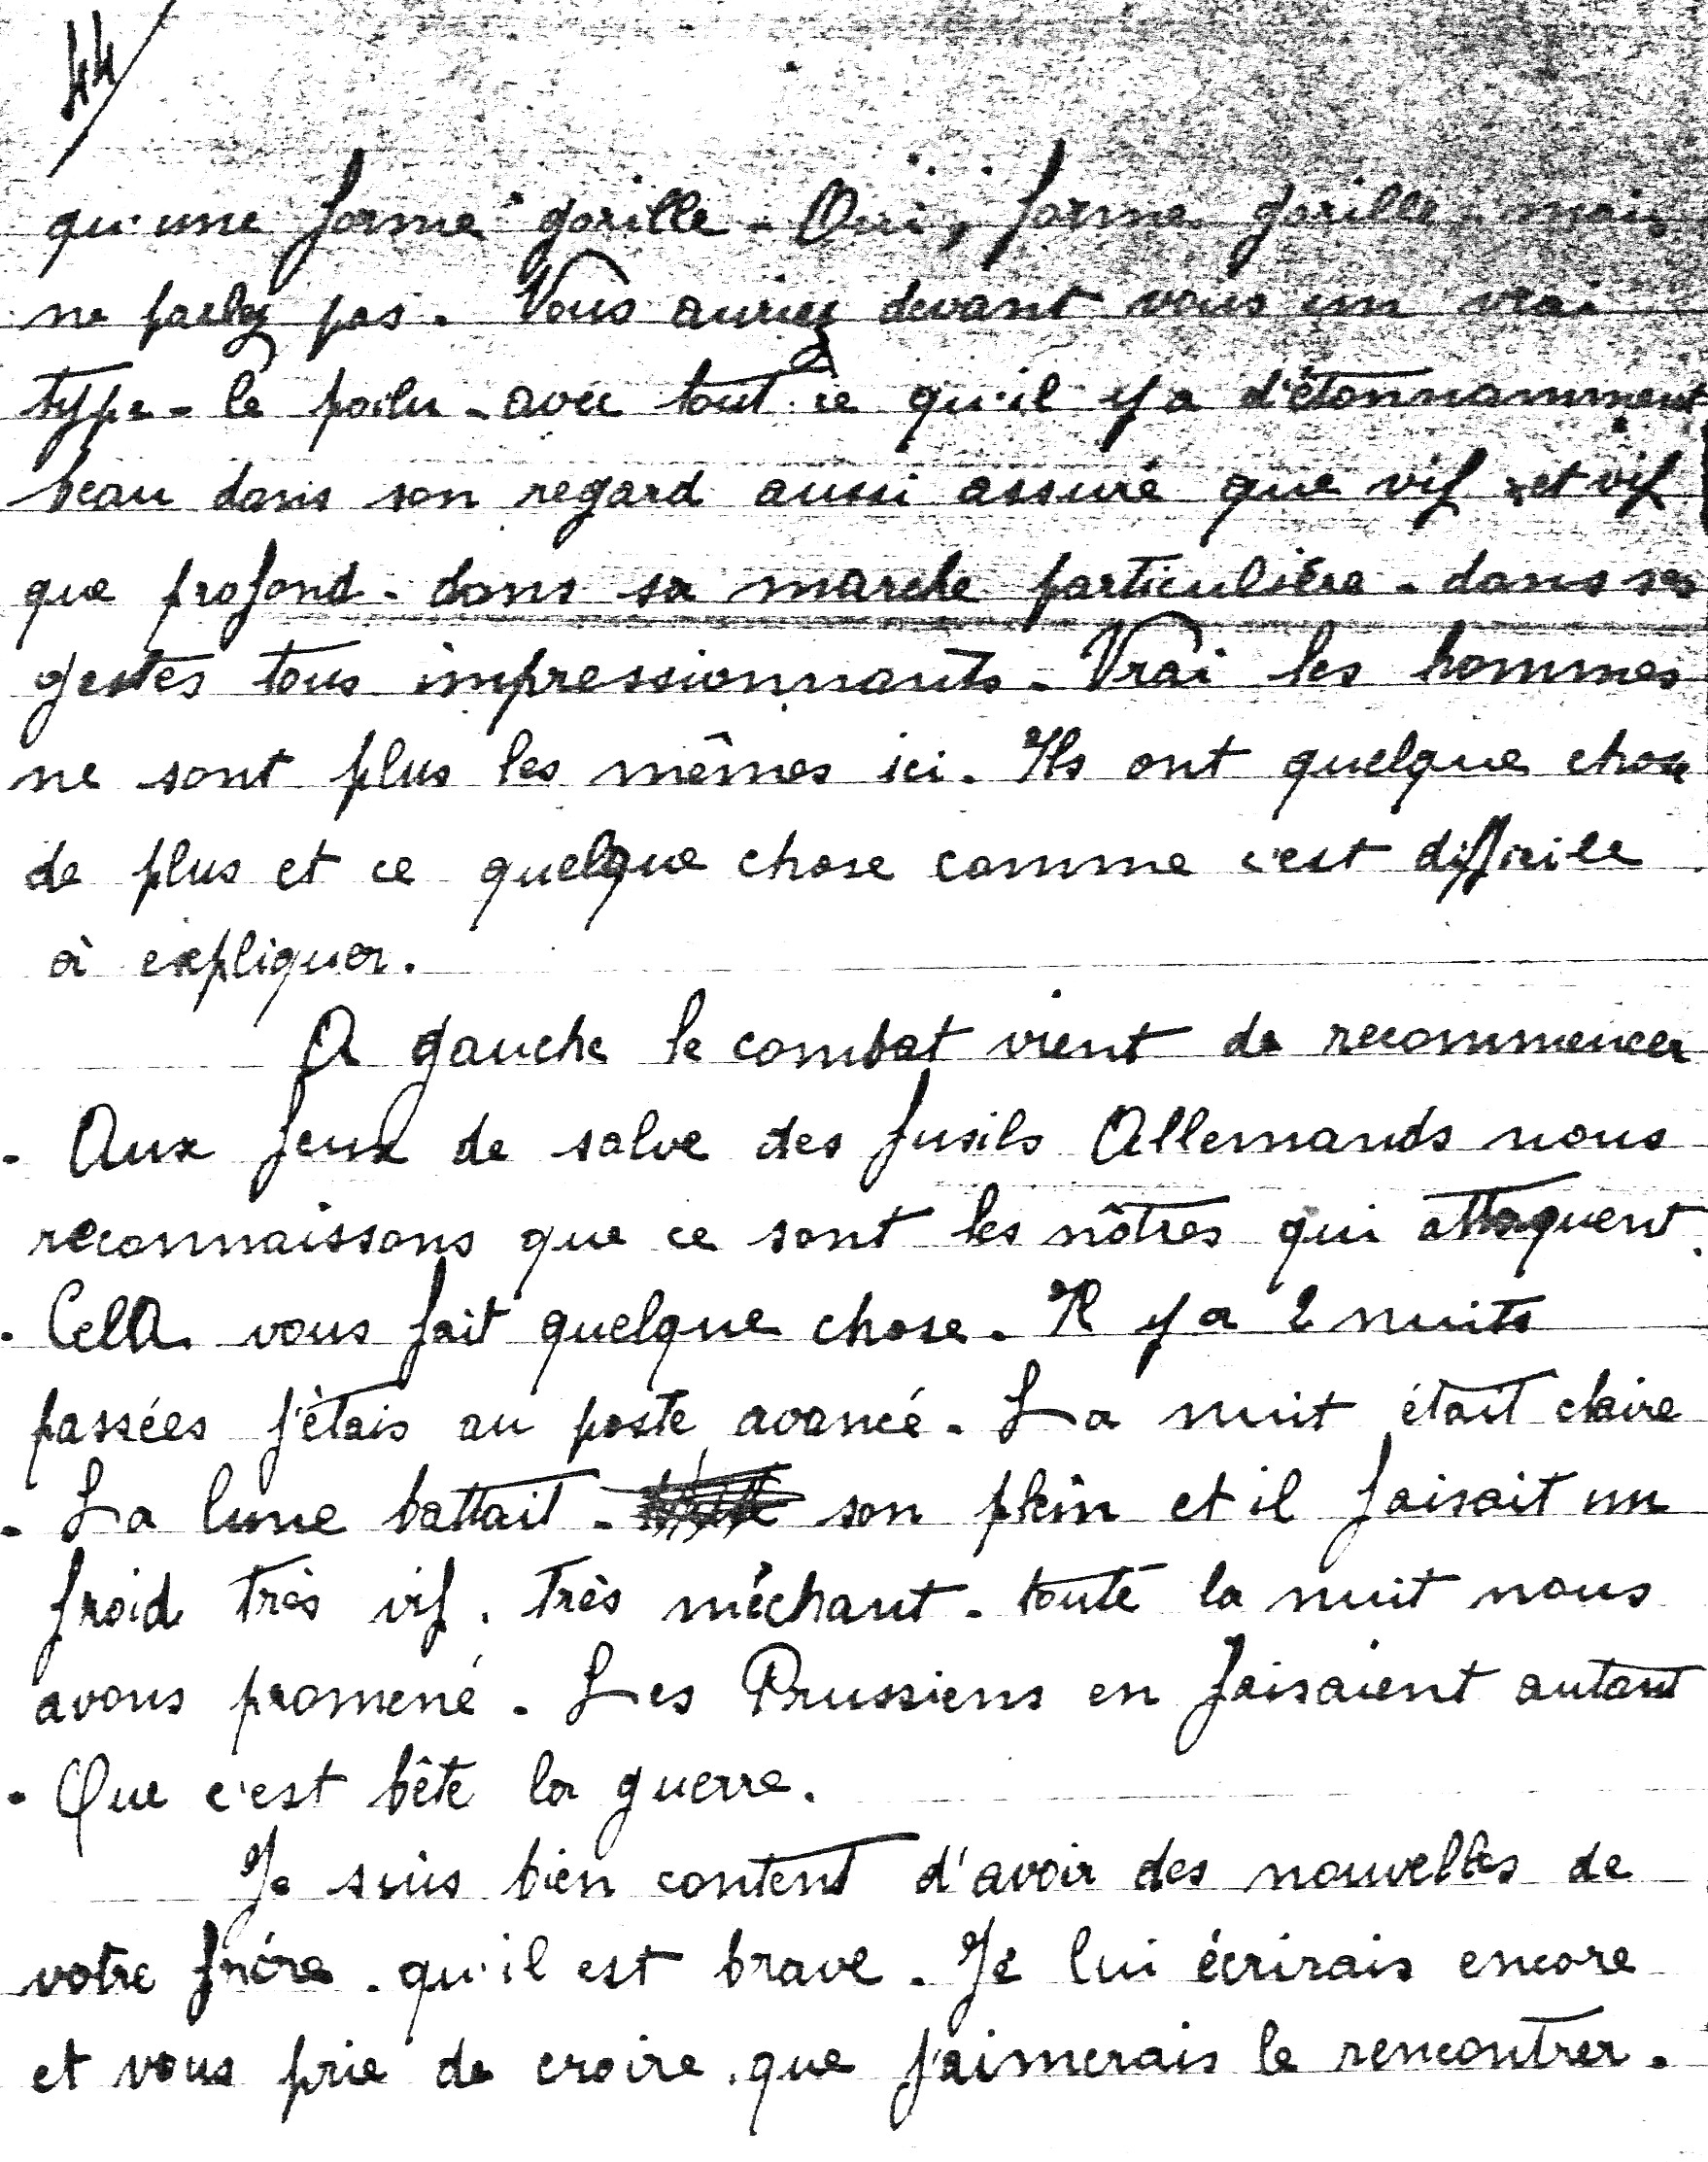 44/
qu'une forme gorille. Oui, forme gorille. mais
ne parlez pas. Vous auriez devant vous un vrai
type - le poilu - avec tout ce qu'il y a d'étonnamment
beau dans son regard aussi assuré que vif et vif
que profond - dans sa marche particulière - dans ses
gestes tous impressionnants. Vrai les hommes
ne sont plus les mêmes ici. Ils ont quelque chose
de plus et ce quelque chose comme c'est difficile
à expliquer.
A gauche le combat vient de recommencer
. Aux feux de salve des fusils Allemands nous
reconnaissons que ce sont les nôtres qui attaquent.
. Cela vous fait quelque chose. Il y a 2 nuits
passées j'étais au poste avancé. La nuit était claire
. La lune battait - son plein et il faisait un
froid très vif. très méchant. toute la nuit nous
avons promené. Les Prussiens en faisaient autant
. Que c'est bête la guerre.
Je suis bien content d'avoir des nouvelles de
votre frère. qu'il est brave. Je lui écrirais encore
et vous prie de croire que j'aimerais le rencontrer.